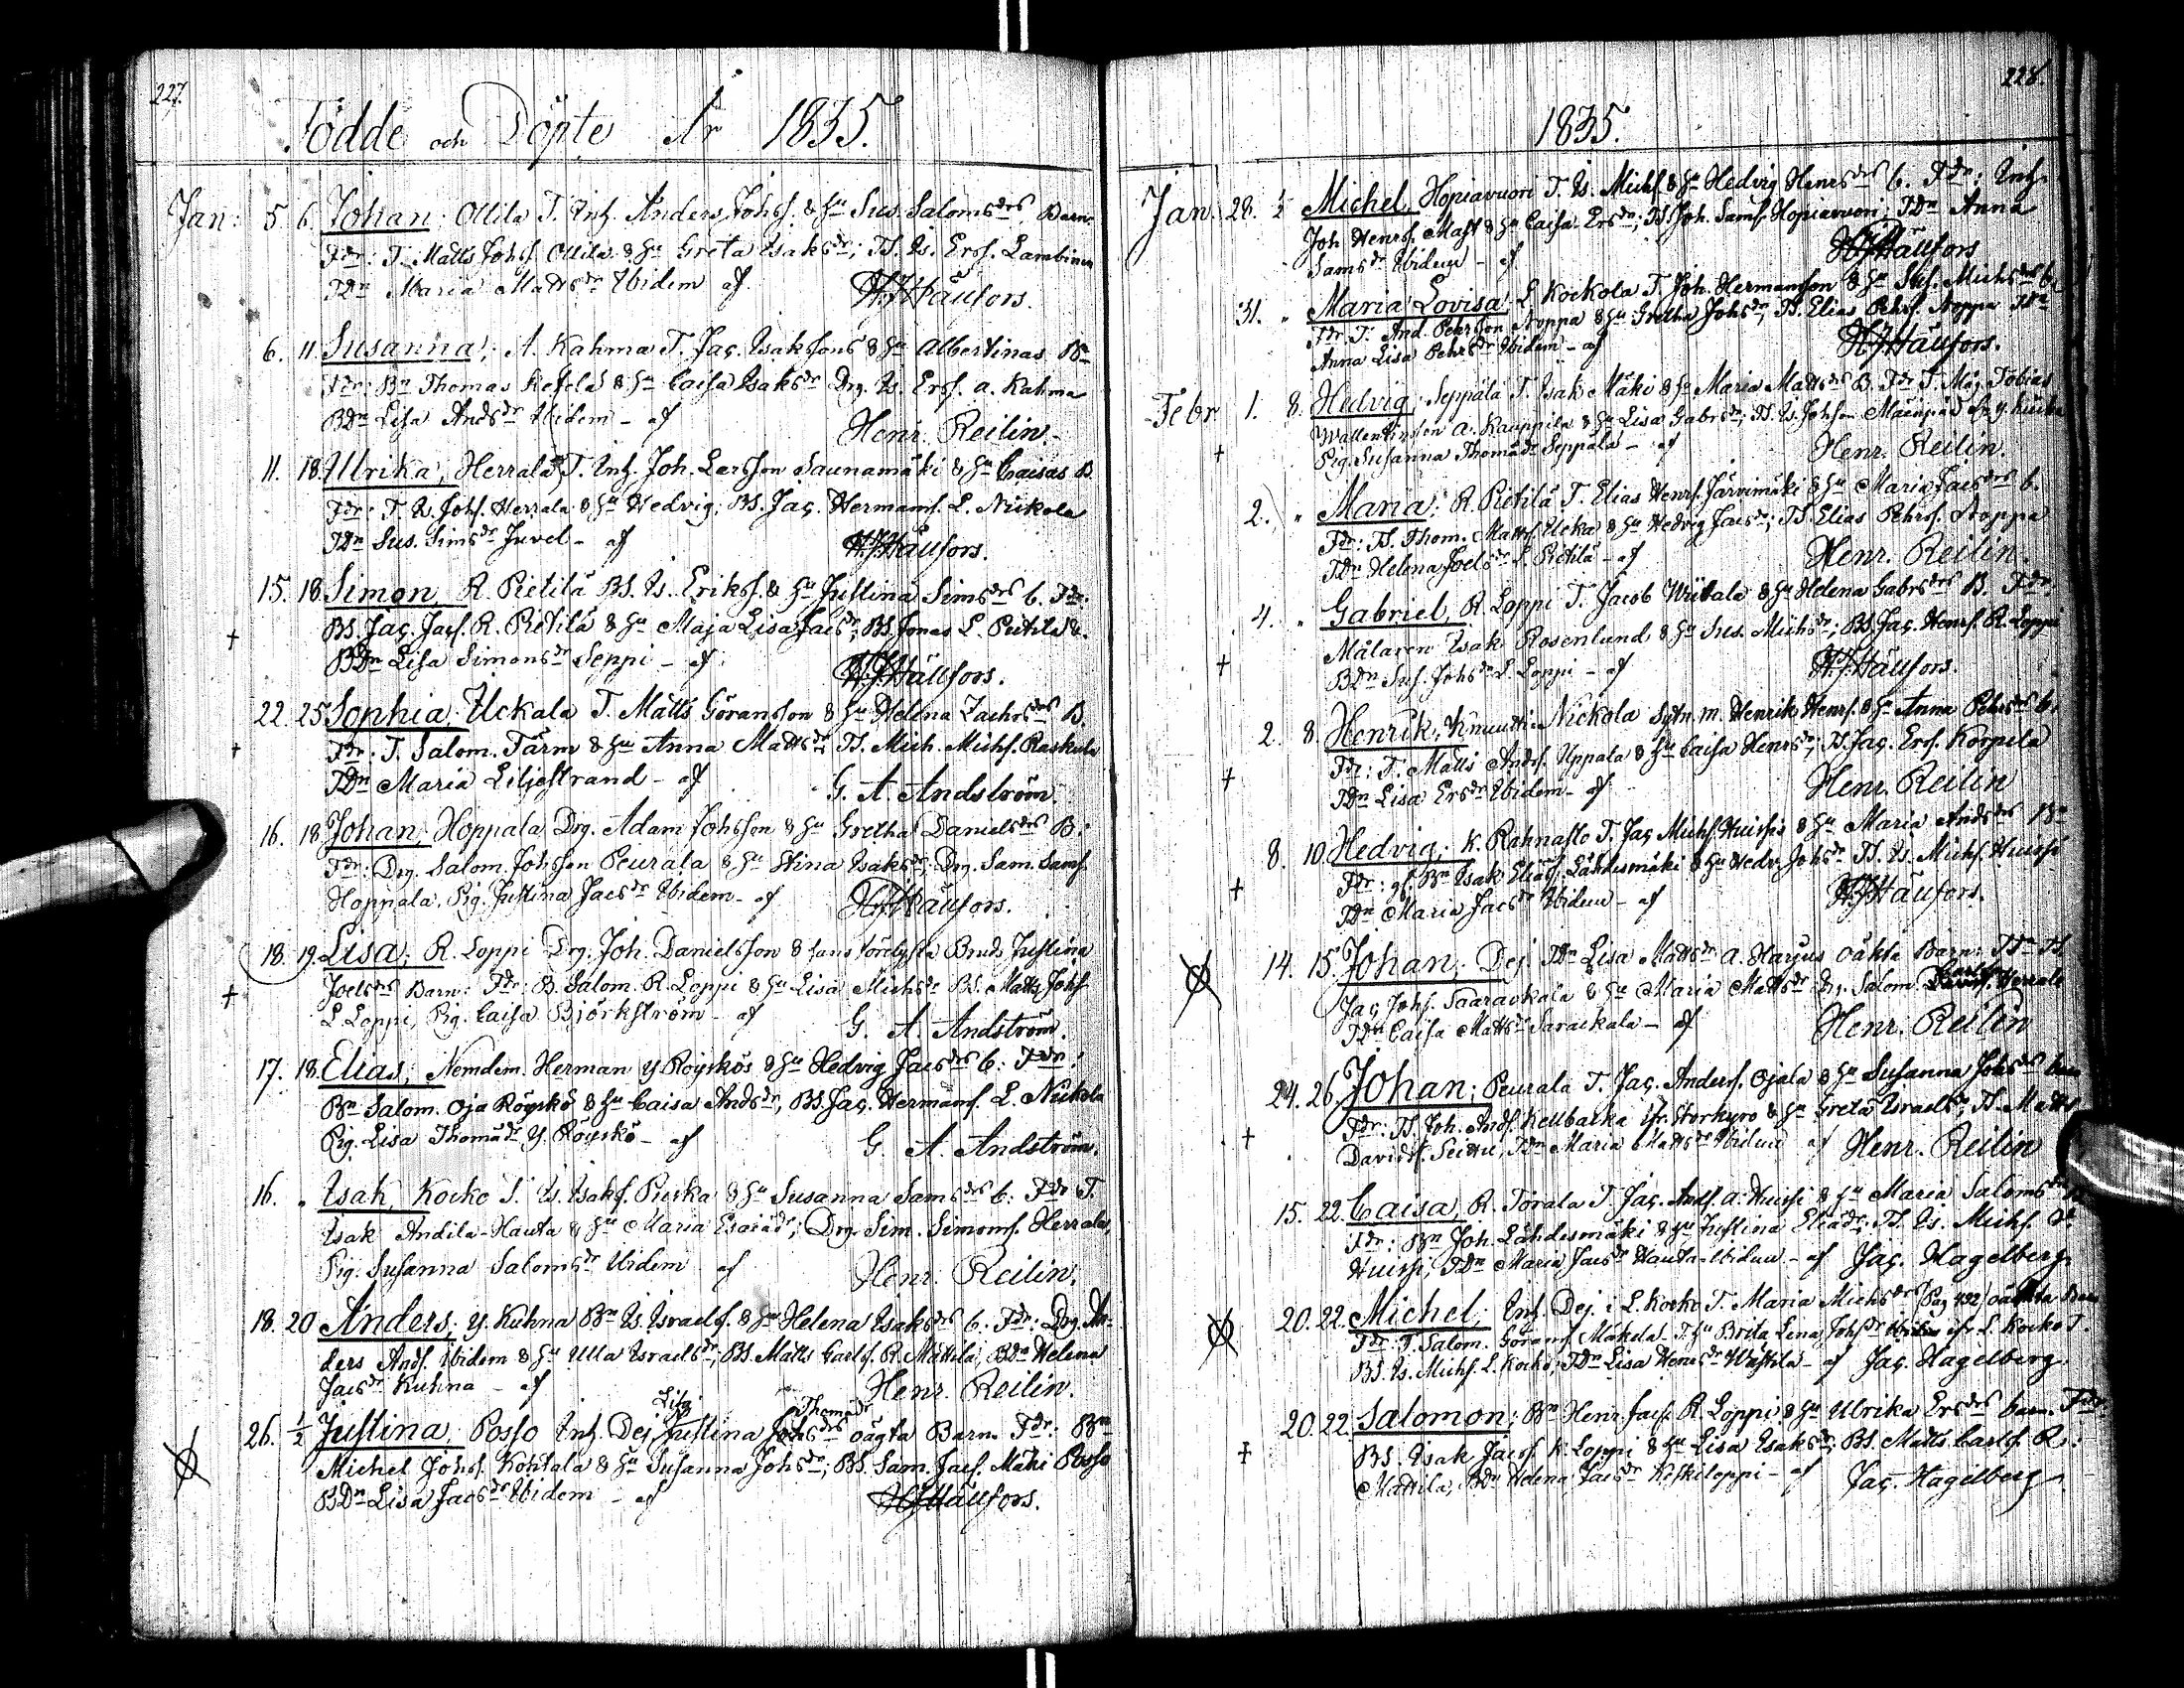 227.
Födde och Döpte År 1835.
Jan: 5. 6. Johan; Ollila T. Inh. Anders Johsf. & Hu Sus. Salomsdrs Barn.
Fdr: T. Matts Johsf. Ollila & Hu Greta Isaksdr; TS. Is. Ersf. Lambinen
TDn Maria Mattsdr Ibidem af H.J. Hällfors.
6. 11. Susanna; A. Kahma T. Jac. Isakssons & Hu Albertinas Bn
Fdr: Bn Thomas & Hu Caisa Isaksdr Drg. Is. Ersf. a. Kahma
BDn Lisa Andsdr Ibidem - af Henr. Reilin.
11. 18. Ulrika; Herrala T. Inh. Joh. Larsson Saunamäki & Hu Caisas B.
Fdr: T. Is. Johsf. Herrala & Hu Hedvig; BS. Jac. Hermansf. L. Nickola
TDn Sus. Simsdr Juvel - af H.J. Hällfors.
15. 18. Simon; R. Pietilä BS. Is. Eriksf. & Hu Justina Simsdrs b. Fdr:
BS. Jac. Jacsf. R. Pietilä & Hu Maja Lisa Jacsdr; BS. Jonas L. Pietilä &.
† BDn Lisa Simonsdr Seppi - af H.J. Hällfors.
22. 25. Sophia; Uckala T. Matts Göransson & Hu Helena Zachrsdrs B.
† Fdr: T. Salom. Tärm & Hu Anna Mattsdr; TS. Mich. Michsf. Raskala
TDn Maria Liljestrand - af G. A. Andström.
16. 18. Johan; Hoppala Drg. Adam Johsson & Hu Gretha Danielsdrs B:
Fdr: Drg. Salom. Johsson Peurala & Hu Stina Isaksdr; Drg. Sam. Samsf.
Hoppala, Pig. Justina Jacsdr Ibidem - af H.J. Hällfors.
18. 19. Lisa; R. Loppi Drg. Joh. Danielsson & hans Bruds Justina
† Joelsdrs Barn: Fdr: B. Salom. R. Loppi & Hu Lisa Michsdr BS. Matts Johsf
L. Loppi, Pig. Caisa Björkström - af G. A. Andström.
17. 18. Elias; Nemdem. Herman Y. Röyskös & Hu Hedvig Jacsdrs b: Fdr:
Bn Salom. Oja Röyskö & Hu Caisa Andsdr, BS. Jac. Hermansf. L. Nickola
Pig. Lisa Thomädr Y. Röyskö - af G. A. Andström.
16. " Isak; Kocko T. Is. Isaksf. & Hu Susanna Samsdrs b: Fdr T.
Isak Andila-Hauta & Hu Maria Esaiädr; Drg. Sim. Simonsf. Herrala,
Pig. Susanna Salomsdr Ibidem af Henr. Reilin.
18. 20. Anders; Y. Kuhna Bn Is. Israelsf. & Hu Helena Isaksdrs b. Fdr: Drg. An-
ders Andsf. Ibidem & Hu Ulla Israelsdr; BS. Matts Carlsf. R. Mattila, BDn Helena
Jacsdr Kuhna - af Henr. Reilin.
Lisa Thomädr
26. ½ Justina; Posso Inh. Dej Justina Johsdrs oägta Barn. Fdr: Bn
Michel Johsf. Kohtala & Hu Susanna Johsdr; BS. Sam. Jacsf. Mäki Posso
BDn Lisa Jacsdr Ibidem - af H.J. Hällfors.
228.
1835.
Jan. 28. ½ Michel; Hopiavuori T. Is. Michsf. & Hu Hedvig Henrsdrs b. Fdr: Inh.
Joh. Henrsf. Mast & Hu Caisa Ersdr; TS. Joh. Samsf. Hopiavuori, TDn Anna
Samsdr Ibidem - af H.J. Hällfors
31. " Maria Lovisa; L. Kockola T. Joh. Hermansson & Hu Sus. Michsdrs b.
Fdr: T. And. Pehrsson Noppa & Hu Gretha Johsdr; TS. Elias Pehrsf. Noppa TDn
Anna Lisa Pehrsdr Ibidem - af H.J. Hällfors.
Febr 1. 8. Hedvig; Seppälä T. Isak Mäki & Hu Maria Mattsdrs B. Fdr T. Måg Tobias
Wallentinsson a. Kauppila & Hu Lisa Gabrsdr; TS. Is. Johsson
† Pig. Susanna Thomädr Seppälä - af Henr. Reilin.
2. " Maria; R. Pietilä T. Elias Henrsf. Järvimäki & Hu Maria Jacsdrs b.
Fdr: TS. Thom. Mattsf. Ucka & Hu Hedvig Jacsdr; TS. Elias Pehrsf. Noppa
TDn Helena Joelsdr L. Pietilä - af Henr. Reilin
4. " Gabriel; R. Loppi T. Jacob Wiitala & Hu Helena Gabrsdrs B. Fdr:
Målaren Isak Rosenlund & Hu Sus. Michsdr; BS. Jac. Henrsf. R. Loppi
† BDn Sus. Johsdr L. Loppi - af H.J. Hällfors.
2. 8. Henrik; Knuutti-Nickola Sytn.m. Henrik Henrsf. & Hu Anna Pehrsdrs b.
Fdr: T. Matts Andsf. Uppala & Hu Caisa Henrsdr; TS. Jac. Ersf. Korpela
† TDn Lisa Ersdr Ibidem - af Henr. Reilin
8. 10. Hedvig; K. Rahnasto T. Jac. Michsf. Huissis & Hu Maria Andsdrs Bn
Fdr: gf. Bn Isak Eliäsf. Lähdesmäki & Hu Hedv. Johsdr TS. Is. Michsf. Huissi
† TDn Maria Jacsdr Ibidem - af H.J. Hällfors.
14. 15. Johan; Dej. TDn Lisa Mattsdr a. Harjus oäkta Barn: Fdr TS.
Jac. Johsf. Saaraskala & Hu Maria Mattsdr Drg. Salom. Herrala
TDn Caisa Mattsdr Sarackala - af Henr. Reilin
24. 26. Johan; Peurala T. Jac. Andersf. Ojala & Hu Susanna Johsdrs barn
Fdr: TS. Joh. Andsf. Kellbacka ifr. Storkyro & Hu Greta Israelsdr; TS. Matts
† Davidsf. Seittu, TDn Maria Mattsdr Ibidem af Henr. Reilin
15. 22. Caisa; R. Torala T. Jac. Andsf. a. Huissi & Hu Maria Salomsdrs
Fdr: Bn Joh. Lähdesmäki & Hu Justina Eliädr; TS. Is. Michsf.
Huissi, TDn Maria Jacsdr Hauta-Ibidem - af Jac. Hagelberg.
20. 22. Michel; Inh. Dej. i L. Kocko T. Maria Michsdrs (Pag 492) oäkta Barn
Fdr: T. Salom. Göransf. Mäkelä T. Hu Brita Lena Johsdr ifr. L. Kocko T.
BS. Is. Michsf. L. Kocko; TDn Lisa Henrsdr - af Jac. Hagelberg.
20. 22. Salomon; Bn Henr. Jacsf. R. Loppi & Hu Ulrika Ersdrs barn. Fdr:
† BS. Isak Jacsf. K. Loppi & Hu Lisa Isaksdr; BS. Matts Carlsf. R:
Mattila, BDn Helena Jacsdr Keskiloppi - af Jac. Hagelberg